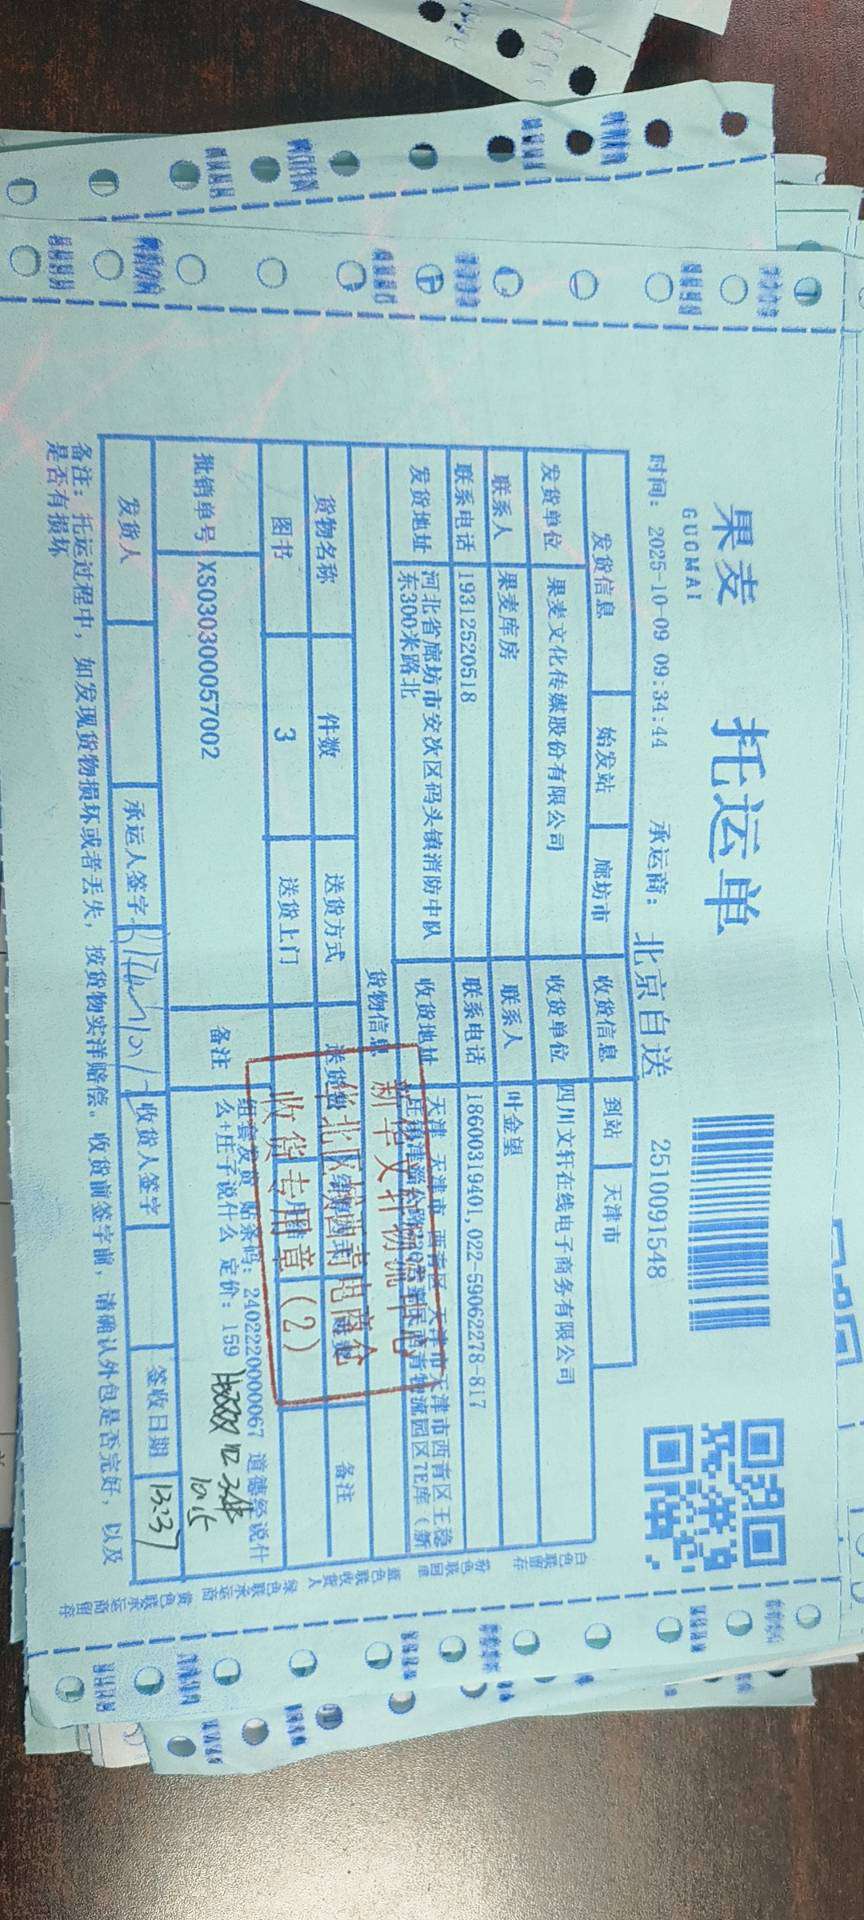 果麦 托运单
GUOMAI
2510091548
时间: 2025-10-09 09:34:44 承运商: 北京自送
发货信息 始发站 廊坊市 收货信息 到站 天津市
发货单位 果麦文化传媒股份有限公司 收货单位 四川文轩在线电子商务有限公司
联系人 果麦库房 联系人 叶金望
联系电话 19312520518 联系电话 18600319401,022-59062278-817
发货地址 河北省廊坊市安次区码头镇消防中队
东300米路北
收货地址 天津 天津市 西青区 天津市天津市西青区王
西青物流园区7E库(新
货物信息
货物名称 件数 送货方式 备注
图书 3 送货上门
批销单号 XS030300057002
备注 组套发货 贴条码: 2402220000067 道德经说什
么+庄子说什么 定价: 159
新华文轩物流
华北区域西青电商仓
收货专用章(2)
10.15
发货人 承运人签字 收货人签字 签收日期 13:37
备注: 托运过程中, 如发现货物损坏或者丢失, 按货物实洋赔偿。收货前签字前, 请确认外包是否完好, 以及
是否有损坏
白色联留存 粉色联回单 蓝色联收货人 绿色联承运商 黄色联承运商留存